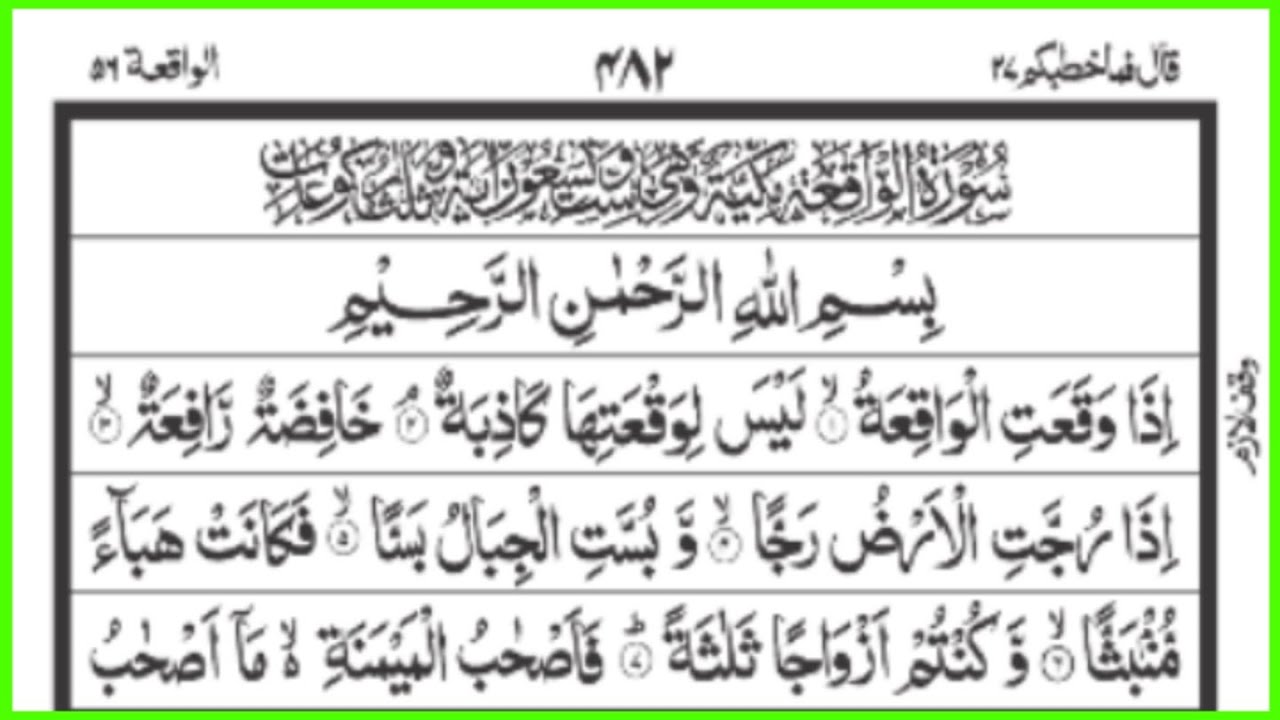 قال فما خطبكم ٢٧ ۴۸۲ الواقعة ۵۶
سُوْرَةُ الْوَاقِعَةِ مَكِّيَّةٌ وَّهِيَ سِتٌّ وَّتِسْعُوْنَ اٰيَةً وَّثَلٰثُ رُكُوْعَاتٍ
بِسْمِ اللّٰهِ الرَّحْمٰنِ الرَّحِيْمِ
اِذَا وَقَعَتِ الْوَاقِعَةُ ۙ‏﴿۱﴾ لَيْسَ لِوَقْعَتِهَا كَاذِبَةٌ ۘ‏﴿۲﴾ خَافِضَةٌ رَّافِعَةٌ ۙ‏﴿۳﴾
وقف لازم
اِذَا رُجَّتِ الْاَرْضُ رَجًّا ۙ‏﴿۴﴾ وَّ بُسَّتِ الْجِبَالُ بَسًّا ۙ‏﴿۵﴾ فَكَانَتْ هَبَآءً
مُّنْۢبَثًّا ۙ‏﴿۶﴾ وَّ كُنْتُمْ اَزْوَاجًا ثَلٰثَةً ؕ‏﴿۷﴾ فَاَصْحٰبُ الْمَيْمَنَةِ ۙ۬ مَاۤ اَصْحٰبُ